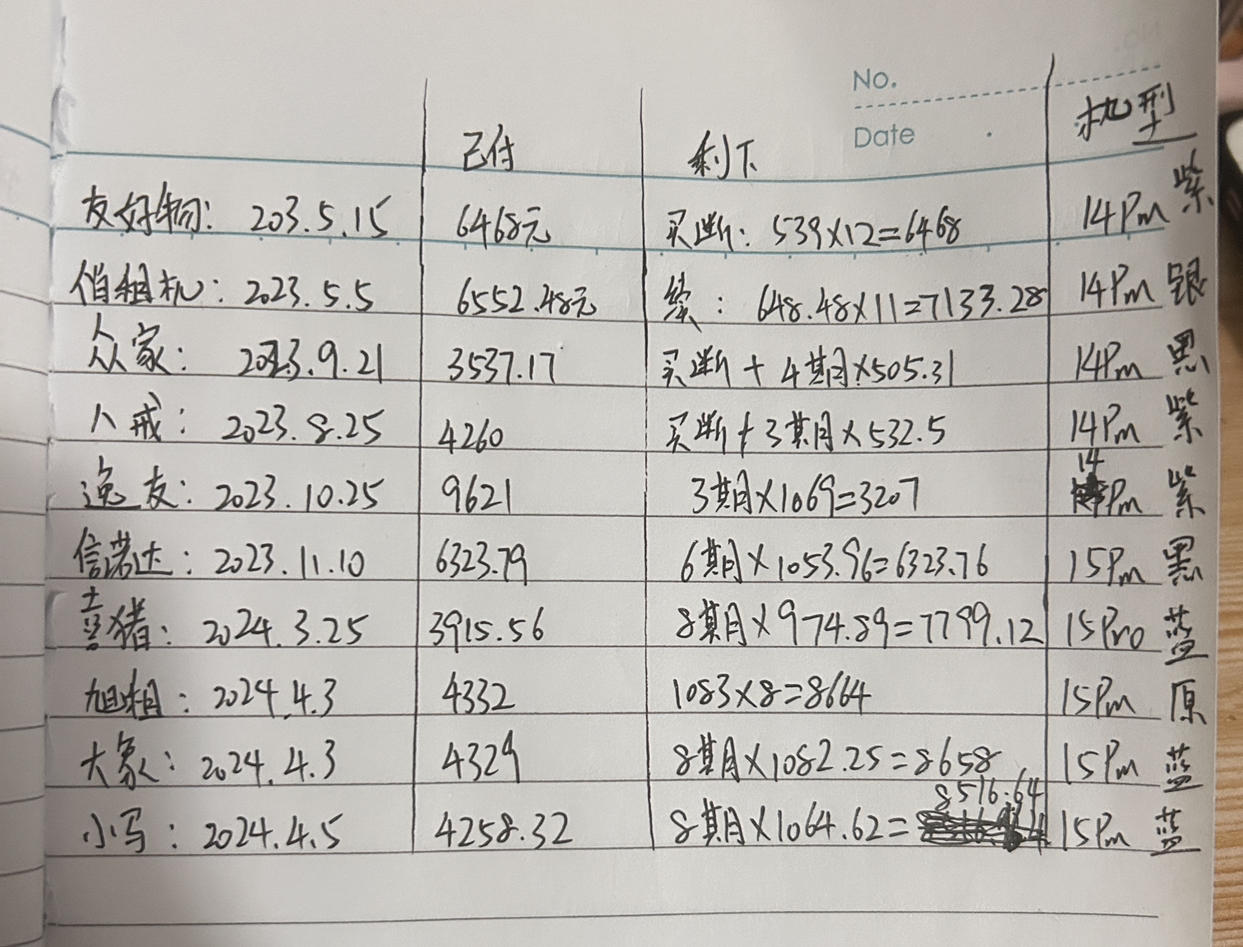 No.
Date
已付 剩下 机型
友好物: 203.5.15 6468元 买断: 539×12=6468 14Pm 紫
俏租机: 2023.5.5 6552.48元 续: 648.48×11=7133.28 14Pm 银
众家: 2023.9.21 3537.17 买断+4期×505.31 14Pm 黑
人戒: 2023.8.25 4260 买断+3期×532.5 14Pm 紫
逸友: 2023.10.25 9621 3期×1069=3207 14Pm 紫
信诺达: 2023.11.10 6323.79 6期×1053.96=6323.76 15Pm 黑
喜猪: 2024.3.25 3915.56 8期×974.89=7799.12 15Pro 蓝
旭租: 2024.4.3 4332 1083×8=8664 15Pm 原
大象: 2024.4.3 4329 8期×1082.25=8658 15Pm 蓝
小马: 2024.4.5 4258.32 8期×1064.62=8516.64 15Pm 蓝